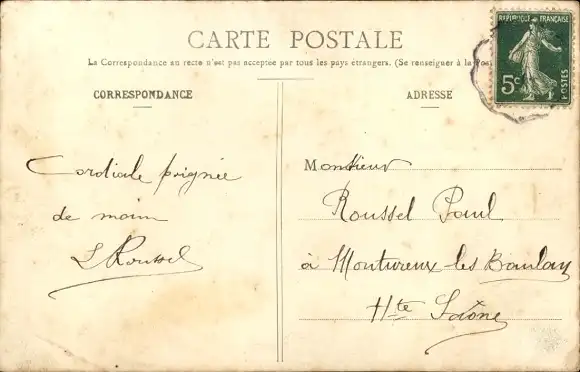 CARTE POSTALE
La Correspondance au recto n'est pas acceptée par tous les pays étrangers. (Se renseigner à la Pos
CORRESPONDANCE
Cordiale poignée
de main
L Roussel
ADRESSE
Monsieur
Roussel Paul
à Montureux-les-Baulay
Hte Saône
REPUBLIQUE FRANÇAISE
5c
POSTES